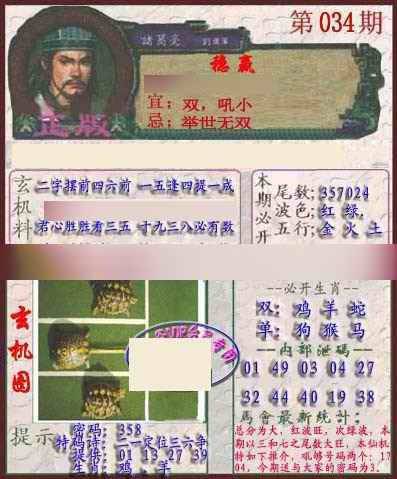 第034期
諸葛亮
稳赢
宜：双，吼小
忌：举世无双
正版
玄机料
二字摆前四六前 一五逢四提一成
君心胜胜看三五 寸九三八必有数
本期必开
尾数:357024
波色:红 绿.
五行:金 火 土
玄机图
--必开生肖--
双: 鸡 羊 蛇
单: 狗 猴 马
--内部泄码--
01 49 03 04 27
32 44 40 19 38
馬會最新統計:
总分为大，红波旺，次绿波，本
期以三和七之尾数大旺，本仙机
特如下推介，吼够号码两个：17
04，今期送与大家的密码为3.
提示
密码: 358
特码诗: 二一定位三六争
提供: 01 13 27 39
生肖: 鸡 羊